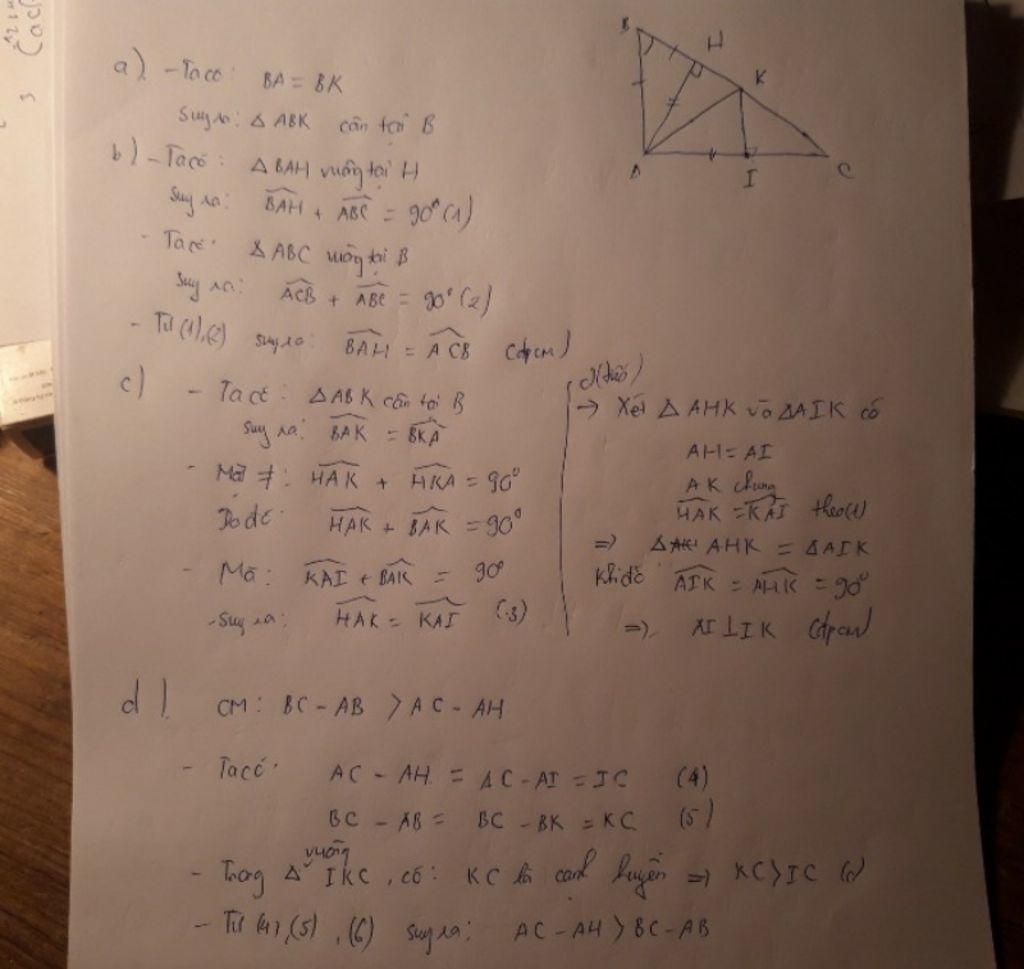 a) - Ta có: BA = BK
Suy ra: Δ ABK cân tại B
b) - Ta có: Δ BAH vuông tại H
Suy ra: \widehat{BAH} + \widehat{ABC} = 90° (1)
- Ta có: Δ ABC vuông tại B
Suy ra: \widehat{ACB} + \widehat{ABC} = 90° (2)
- Từ (1), (2) suy ra: \widehat{BAH} = \widehat{ACB} (đpcm)
c) - Ta có: Δ ABK cân tại B
suy ra: \widehat{BAK} = \widehat{BKA}
- Mặt ≠: \widehat{HAK} + \widehat{HKA} = 90°
Do đó: \widehat{HAK} + \widehat{BAK} = 90°
- Mà: \widehat{KAI} + \widehat{BAK} = 90°
- Suy ra: \widehat{HAK} = \widehat{KAI} (3)
→ Xét Δ AHK và ΔAIK có
AH = AI
AK chung
\widehat{HAK} = \widehat{KAI} theo
⇒ Δ AHK = ΔAIK
Khi đó \widehat{AIK} = \widehat{AHK} = 90°
⇒ AI ⊥ IK (đpcm)
d) CM: BC - AB > AC - AH
- Ta có: AC - AH = AC - AI = IC (4)
BC - AB = BC - BK = KC (5)
- Trong Δ vuông IKC, có: KC là cạnh huyền ⇒ KC > IC
- Từ (4), (5), (6) suy ra: AC - AH > BC - AB
B
H
K
A
I
C